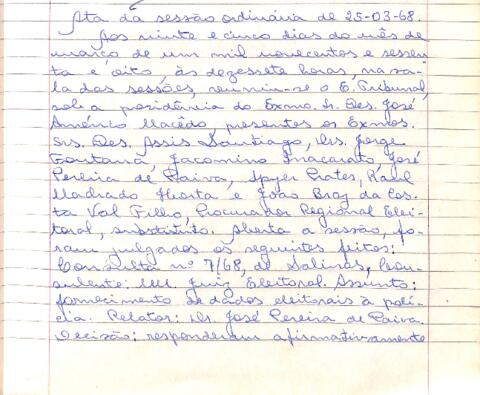 Ata da sessão ordinária de 25-03-68.
Aos vinte e cinco dias do mês de
março de um mil novecentos e sessen-
ta e oito, às dezessete horas, na sa-
la das sessões, reuniu-se o E. Tribunal,
sob a presidência do Exmo. Sr. Des. José
Américo Macêdo, presentes os Exmos.
Srs. Des. Assis Santiago, Drs. Jorge
Fontana, Jacomino Inacarato, José
Pereira de Paiva, Ayer Prates, Raul
Machado Horta e João Braz da Cos-
ta Val Filho, Procurador Regional Elei-
toral, substituto. Aberta a sessão, fo-
ram julgados os seguintes feitos:
Consulta nº 7/68, de Salinas, Con-
sulente: MM. Juiz Eleitoral. Assunto:
fornecimento de dados eleitorais à polí-
cia. Relator: Dr. José Pereira de Paiva.
Decisão: responderam afirmativamente